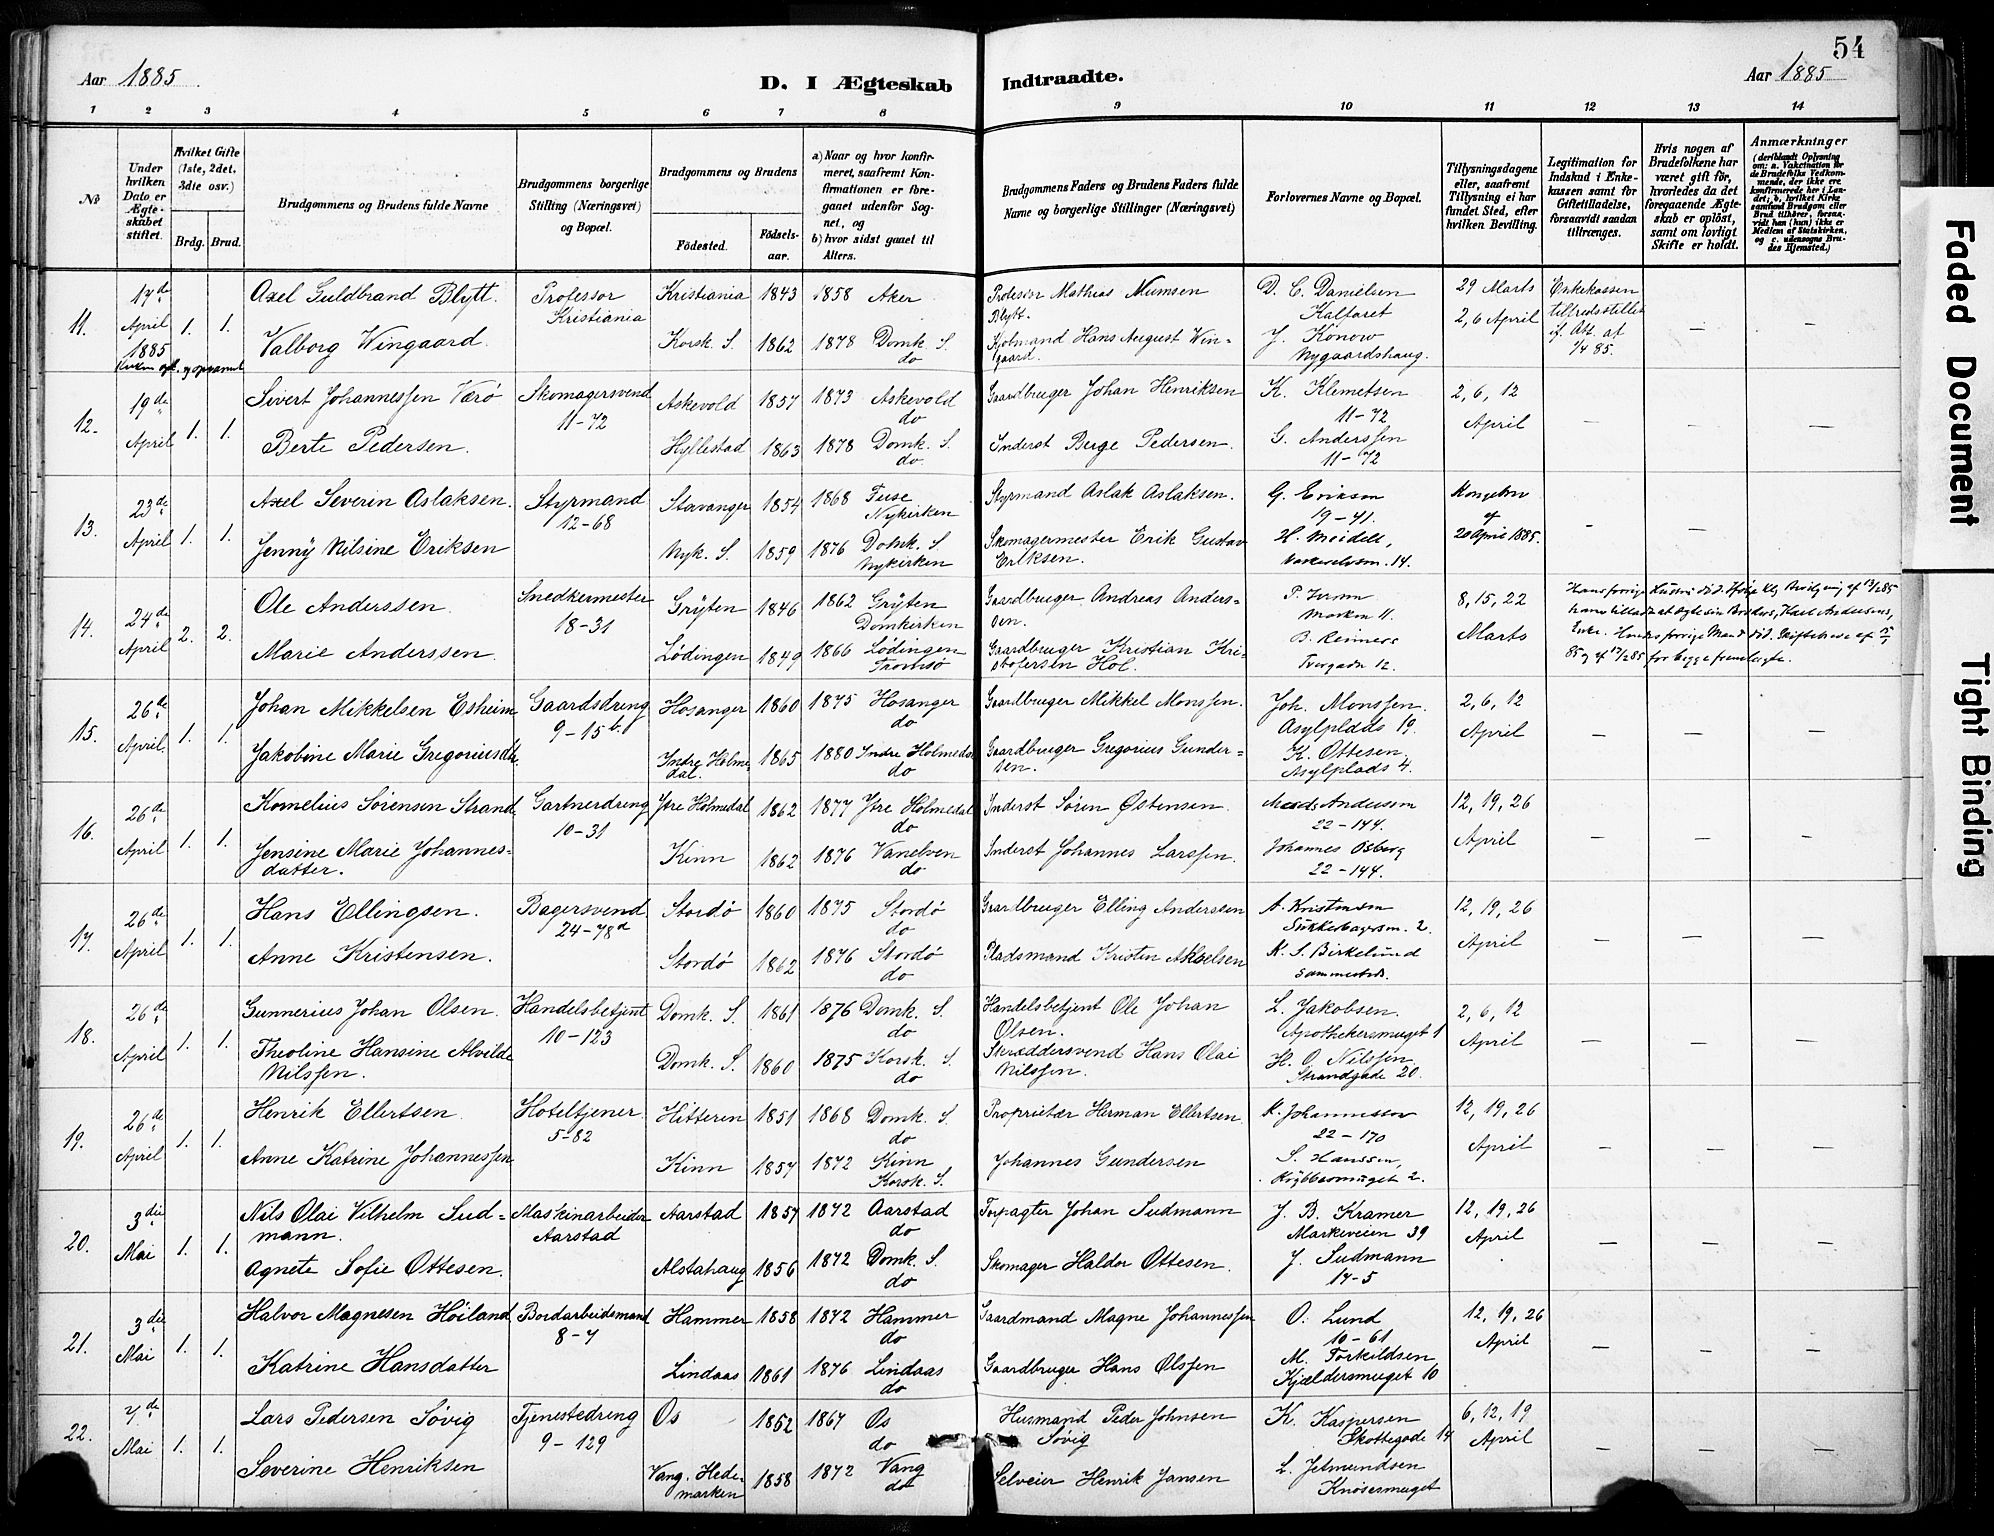 54
Aar 1885
D. I Ægteskab
Indtraadte.
Aar 1885
1 2 3 4 5 6 7 8 9 10 11 12 13 14
No
Under hvilken Dato er Ægteskabet stiftet.
Hvilket Gifte (1ste, 2det, 3die osv.)
Brdg. Brud.
Brudgommens og Brudens fulde Navne
Brudgommens borgerlige Stilling (Næringsvei) og Bopæl.
Brudgommens og Brudens
Fødested.
Fødselsaar.
a) Naar og hvor konfirmeret, saafremt Konfirmationen er foregaaet udenfor Sognet, og
b) hvor sidst gaaet til Alters.
Brudgommens Faders og Brudens Faders fulde Navne og borgerlige Stillinger (Næringsvei)
Forlovernes Navne og Bopæl.
Tillysningsdagene eller, saafremt Tillysning ei har fundet Sted, efter hvilken Bevilling.
Legitimation for Indskud i Enkekassen samt for Giftetilladelse, forsaavidt saadan tiltrænges.
Hvis nogen af Brudefolkene har været gift før, hvorledes da det foregaaende Ægteskab er opløst, samt om lovligt Skifte er holdt.
Anmærkninger
(deriblandt Oplysning om: a. Vakcination for de Brudefolks Vedkommende, der ikke ere konfirmerede her i Landet; b. hvilket Kirkesamfund Brudgom eller Brud tilhører, forsavidt han (hun) ikke er Medlem af Statskirken, og c. udensogns Brudes Hjemsted.)
11. 17de April 1885 1. 1.
Axel Guldbrand Blytt. Professor Kristiania Kristiania 1843 1858 Aker
Professor Mathias Numsen Blytt. D. C. Danielsen Kalfaret 29 Marts 2, 6 April
Enkekassen tilfredsstillet if. Att. af 1/4 85. — —
Valborg Wingaard. Korsk. S. 1862 1878 Domk. S. do
Kjøbmand Hans August Wingaard. J. Konow Nygaardshaug.
12. 19de April 1. 1.
Sivert Johannessen Værø Skomagersvend 11-72 Askevold 1857 1873 Askevold do
Gaardbruger Johan Henriksen K. Klemetsen 11-72 2, 6, 12 April — — —
Berte Pedersen. Hyllestad 1863 1878 Domk. S. do.
Inderst Berge Pedersen. G. Anderssen 11-72
13. 23de April 1. 1.
Axel Severin Aslaksen. Styrmand 12-68 Stavanger 1854 1868 Fuse Nykirken
Styrmand Aslak Aslaksen. G. Erikson 19-41. Kongebrev af 20 April 1885. — —
Jenny Nilsine Eriksen Nyk. S. 1859 1876 Domk. S. Nykirken
Skomagermester Erik Gustav Eriksen. H. Meidell, 14.
14. 24de April 2. 2.
Ole Anderssen. Snedkermester 18-31 Grÿten 1846 1862 Grÿten Domkirken
Gaardbruger Andreas Anderssen. P. Marken 11. 8, 15, 22 Marts
Marie Anderssen. Lödingen 1849 1866 Lödingen Tromsö
Gaardbruger Kristian Kristofersen Hol. B. Reimers Tvergade 12.
Hans forrige Hustru död. Ifölge Kgl. Bevilgning af 13/2 85
han tilladt at ægte sin Broders, Karl Andersens,
Enke. Hendes forrige Mand död. Skifteattest af
85 og af 17/2 85 for begge fremlagte.
15. 26de April. 1. 1.
Johan Mikkelsen Esheim Gaardsdreng 9-15b. Hosanger 1860 1875 Hosanger do
Gaardbruger Mikkel Monssen. Joh. Monssen. Asylplads 19. 2, 6, 12 April — — —
Jakobine Marie Gregoriusdtr. Indre Holmedal. 1865 1880 Indre Holmedal do
Gaardbruger Gregorius Gundersen. K. Ottesen, Asylplads 4.
16. 26de April 1. 1.
Kornelius Sørensen Strand. Gartnerdreng 10-31 Ytre Holmedal 1862 1877 Ytre Holmedal do
Inderst Søren Østensen. Mads Andersen 22-144. 12, 19, 26 April — — —
Jensine Marie Johannesdatter. Kinn 1862 1876 Vanelven do
Inderst Johannes Larssen. Johannes Osberg 22-144.
17. 26de April 1. 1.
Hans Ellingsen. Bagersvend 24-78d Stordö 1860 1875 Stordö do
Gaardbruger Elling Anderssen A. Kristensen Sukkerhagersm. 2. 12, 19, 26 April — — —
Anne Kristensen. Stordö 1862 1876 Stordö do
Pladsmand Kristen Akselsen K. S. Birkelund sammesteds.
18. 26de April 1. 1.
Gunnerius Johan Olsen. Handelsbetjent 10-123 Domk. S. 1861 1876 Domk. S. do
Handelsbetjent Ole Johan Olsen. L. Jakobsen. Apothekersmuget 1 2, 6, 12 April — — —
Theoline Hansine Alvilde Nilssen. Domk. S. 1860 1875 Korsk. S. do
Skræddersvend Hans Olai Nilssen. H. O. Nilssen Strandgade 20.
19. 26de April 1. 1.
Henrik Ellertsen. Hoteltjener. 5-82 Hitteren 1851 1868 Domk. S. do
Proprietær Herman Ellertsen. K. Johannessen 22-170 12, 19, 26 April — — —
Anne Katrine Johannessen Kinn 1857 1872 Kinn Korsk. S.
Johannes Gundersen S. Hanssen, Krybbesmuget 2.
20. 3die Mai 1. 1.
Nils Olai Vilhelm Sudmann. Maskinarbeider Aarstad Aarstad 1857 1872 Aarstad do
Forpagter Johan Sudmann J. B. Kramer Markeveien 39 12, 19, 26 April — — —
Agnete Sofie Ottesen. Alstahaug 1856 1872 Domk. S. do
Skomager Haldor Ottesen. J. Sudmann 14-5
21. 3die Mai 1. 1.
Halvor Magnesen Höiland Bordarbeidsmand 8-7 Hammer 1858 1872 Hammer do
Gaardmand Magne Johannessen O. Lund 10-61 12, 19, 26 April — — —
Katrine Hansdatter Lindaas 1861 1876 Lindaas do
Gaardbruger Hans Olssen M. Torkildsen Kjældersmuget 10
22. 7de Mai 1. 1.
Lars Pedersen Søvig Tjenestedreng 9-129 Os 1852 1867 Os do
Husmand Peder Johnsen Søvig K. Kaspersen Skottegade 14 6, 12, 19 April — — —
Severine Henriksen Vang. Hedemarken 1858 1872 Vang do
Selveier Henrik Jansen L. Jetmundsen Knösesmuget
Faded Document
Tight Binding